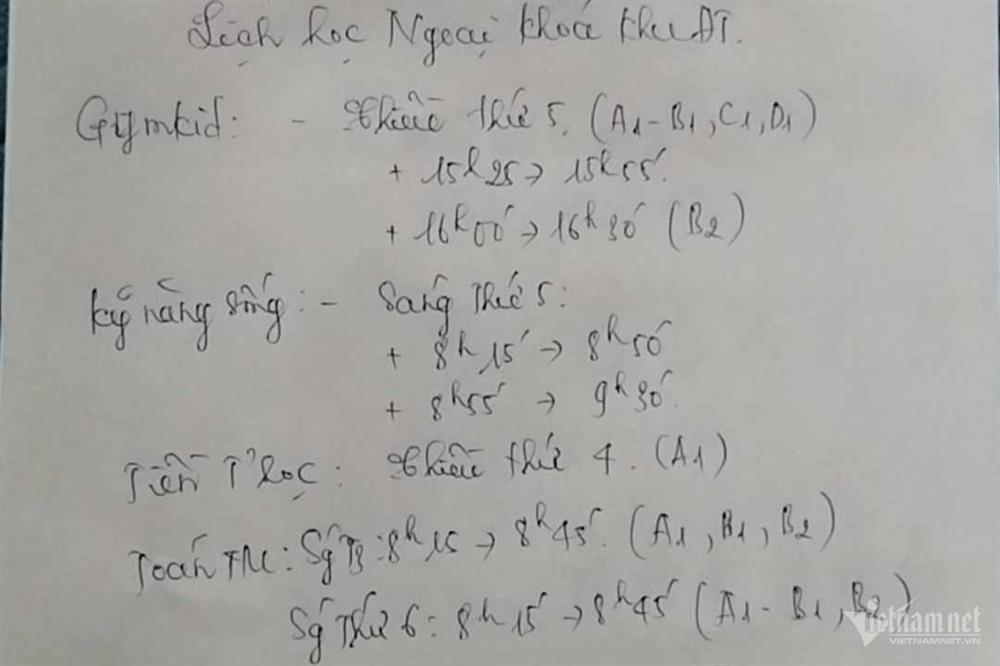 Lịch học Ngoại khoá khu ĐT.
Gymkid: - Chiều thứ 5. (A1-B1, C1, D1)
+ 15h25 → 15h55'.
+ 16h00' → 16h30' (B2)
Kỹ năng sống: - Sáng thứ 5:
+ 8h15' → 8h50'
+ 8h55' → 9h30'.
Tiền T'học: Chiều thứ 4. (A1)
Toán TM: Sg T3: 8h15 → 8h45'. (A1, B1, B2)
Sg Thứ 6: 8h15' → 8h45' (A1 - B1, B2)
Vietnamnet
VIETNAMNET.VN